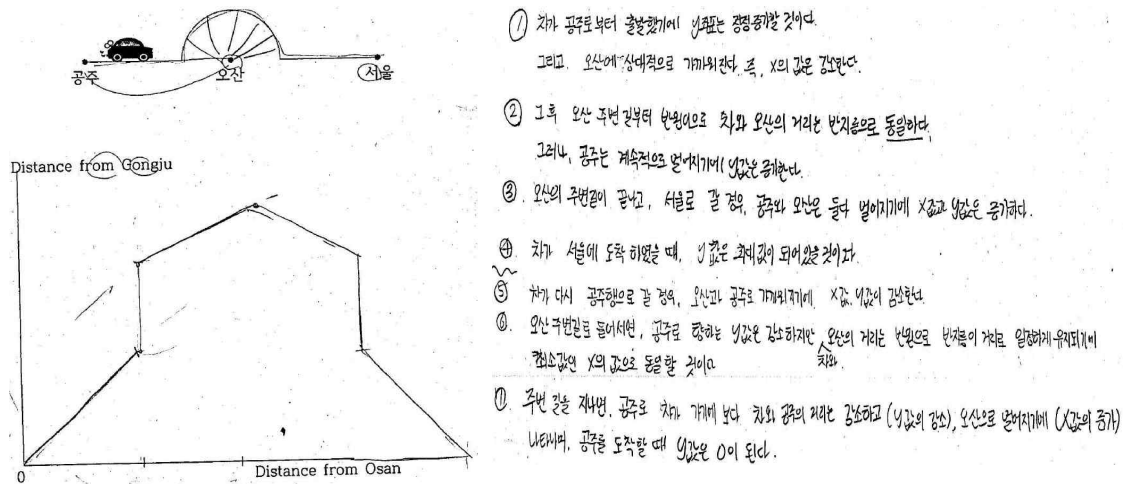 공주
오산
서울
Distance from Gongju
0
Distance from Osan
① 차가 공주로부터 출발했기에 y좌표는 점점 증가할 것이다.
그리고 오산에 상대적으로 가까워진다. 즉, X의 값은 감소한다.
② 그 후 오산 주변 길부터 반원이으로 차와 오산의 거리는 반지름으로 동일하다.
그러나, 공주는 계속적으로 멀어지기에 y값은 증가한다.
③ 오산의 주변길이 끝나고, 서울로 갈 경우, 공주와 오산은 둘다 멀어지기에 X값과 y값은 증가하다.
④ 차가 서울에 도착 하였을 때, y값은 최대값이 되어있을 것이다.
⑤ 차가 다시 공주행으로 갈 경우, 오산과 공주로 가까워지기에 X값, y값이 감소한다.
⑥ 오산 주변길로 들어서면, 공주로 향하는 y값은 감소하지만 차와 오산의 거리는 반원으로 반지름이 거리로 일정하게 유지되기에
최소값인 X의 값으로 동일할 것이다
⑦ 주변 길을 지나면, 공주로 차가 가기에 보다 차와 공주의 거리는 감소하고 (y값의 감소), 오산으로 멀어지기에 (X값의 증가)
나타나며, 공주를 도착할 때 y값은 0이 된다.